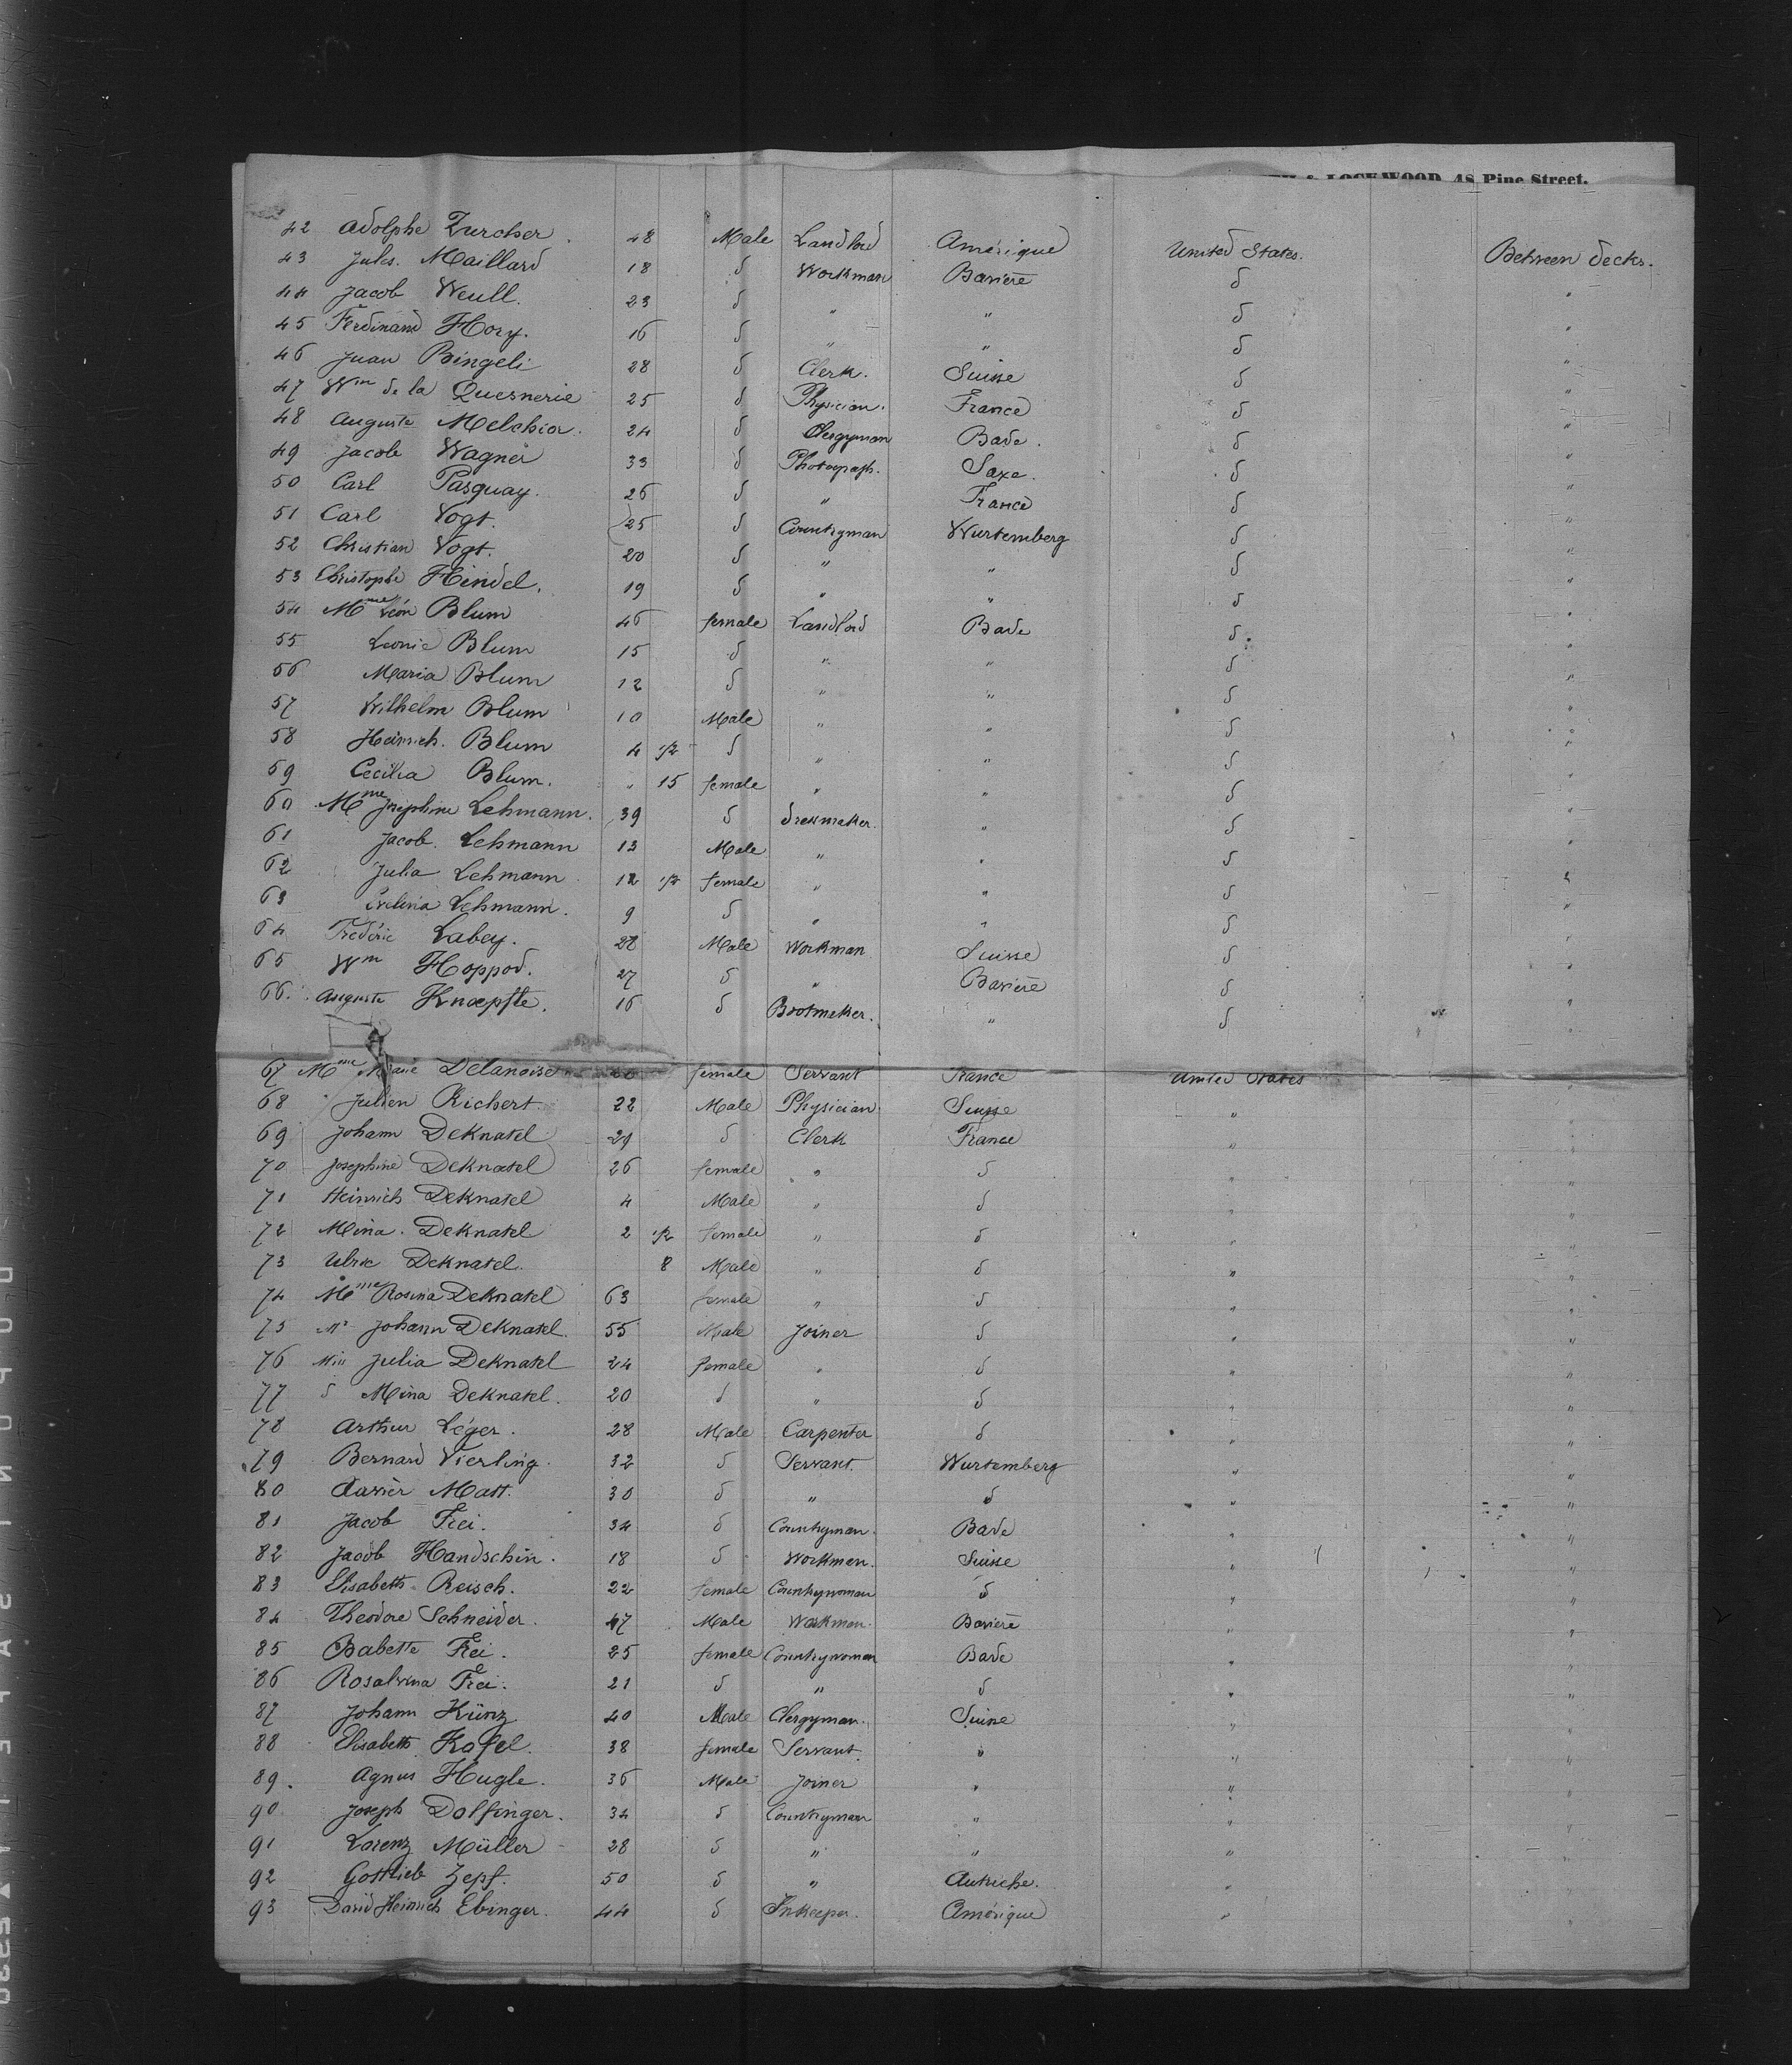 & LOCKWOOD, 48 Pine Street.
42 Adolphe Zurcher. 48 Male Landlord Amérique United States. Between decks.
43 Jules. Maillard 18 d Workman Bavière d "
44 Jacob Weull. 23 d " " d "
45 Ferdinand Hory. 16 d " " d "
46 Juan Bingeli 28 d Clerk. Suisse d "
47 Wm de la Quesnerie 25 d Physician. France d "
48 Auguste Melchior. 24 d Clergyman Bade. d "
49 Jacob Wagner 33 d Photograph. Saxe. d "
50 Carl Pasquay. 26 d " France d "
51 Carl Vogt. 25 d Countryman Wurtemberg d "
52 Christian Vogt. 20 d " " d "
53 Christophe Heindel. 19 d " " d "
54 Mme Léon Blum 46 female Landlord Bade d "
55 Leonie Blum 15 d " " d "
56 Maria Blum 12 d " " d "
57 Wilhelm Blum 10 Male " " d "
58 Heinrich. Blum 4 1/2 d " " d "
59 Cecilia Blum. " 15 female " " d "
60 Mme Josephine Lehmann. 39 d dressmaker. " d "
61 Jacob. Lehmann 13 Male " " d "
62 Julia Lehmann 12 1/2 female " " d "
63 Evelina Lehmann. 9 d " " d "
64 Frédéric Labey. 28 Male Workman Suisse d "
65 Wm Hoppod. 27 d " Bavière d "
66. Auguste Knoepfle. 16 d Bootmaker. " d "
67 Mme Marie Delanoise female Servant France United States "
68 Julien Richert. 22 Male Physician Suisse " "
69 Johann DeKnatel 29 d Clerk France " "
70 Josephine DeKnatel 26 female " d " "
71 Heinrich DeKnatel 4 Male " d " "
72 Mina. DeKnatel 2 1/2 female " d " "
73 Ulric DeKnatel. 8 Male " d " "
74 Mme Rosina DeKnatel 63 female " d " "
75 Mr Johann DeKnatel. 55 Male Joiner d " "
76 Miss Julia DeKnatel 24 female " d " "
77 d Mina DeKnatel. 20 d " d " "
78 Arthur Léger. 28 Male Carpenter d " "
79 Bernard Vierling. 32 d Servant. Wurtemberg " "
80 Xavier Matt. 30 d " d " "
81 Jacob Frei. 34 d Countryman. Bade " "
82 Jacob Handschin. 18 d Workman. Suisse " "
83 Elisabeth Reisch. 22 female Countrywoman d " "
84 Theodore Schneider. 47 Male Workman. Bavière " "
85 Babette Frei. 25 female Countrywoman Bade " "
86 Rosalvina Frei. 21 d " d " "
87 Johann Künz 40 Male Clergyman. Suisse " "
88 Elisabeth Kofel. 38 female Servant. " " "
89. Agnus Hugle. 36 Male Joiner " " "
90 Joseph Dolfinger. 34 d Countryman " " "
91 Lorenz Müller 28 d " " " "
92 Gottlieb Zepf. 50 d " Autriche. " "
93 David Heinrich Ebinger. 44 d Inkeeper. Amérique " "